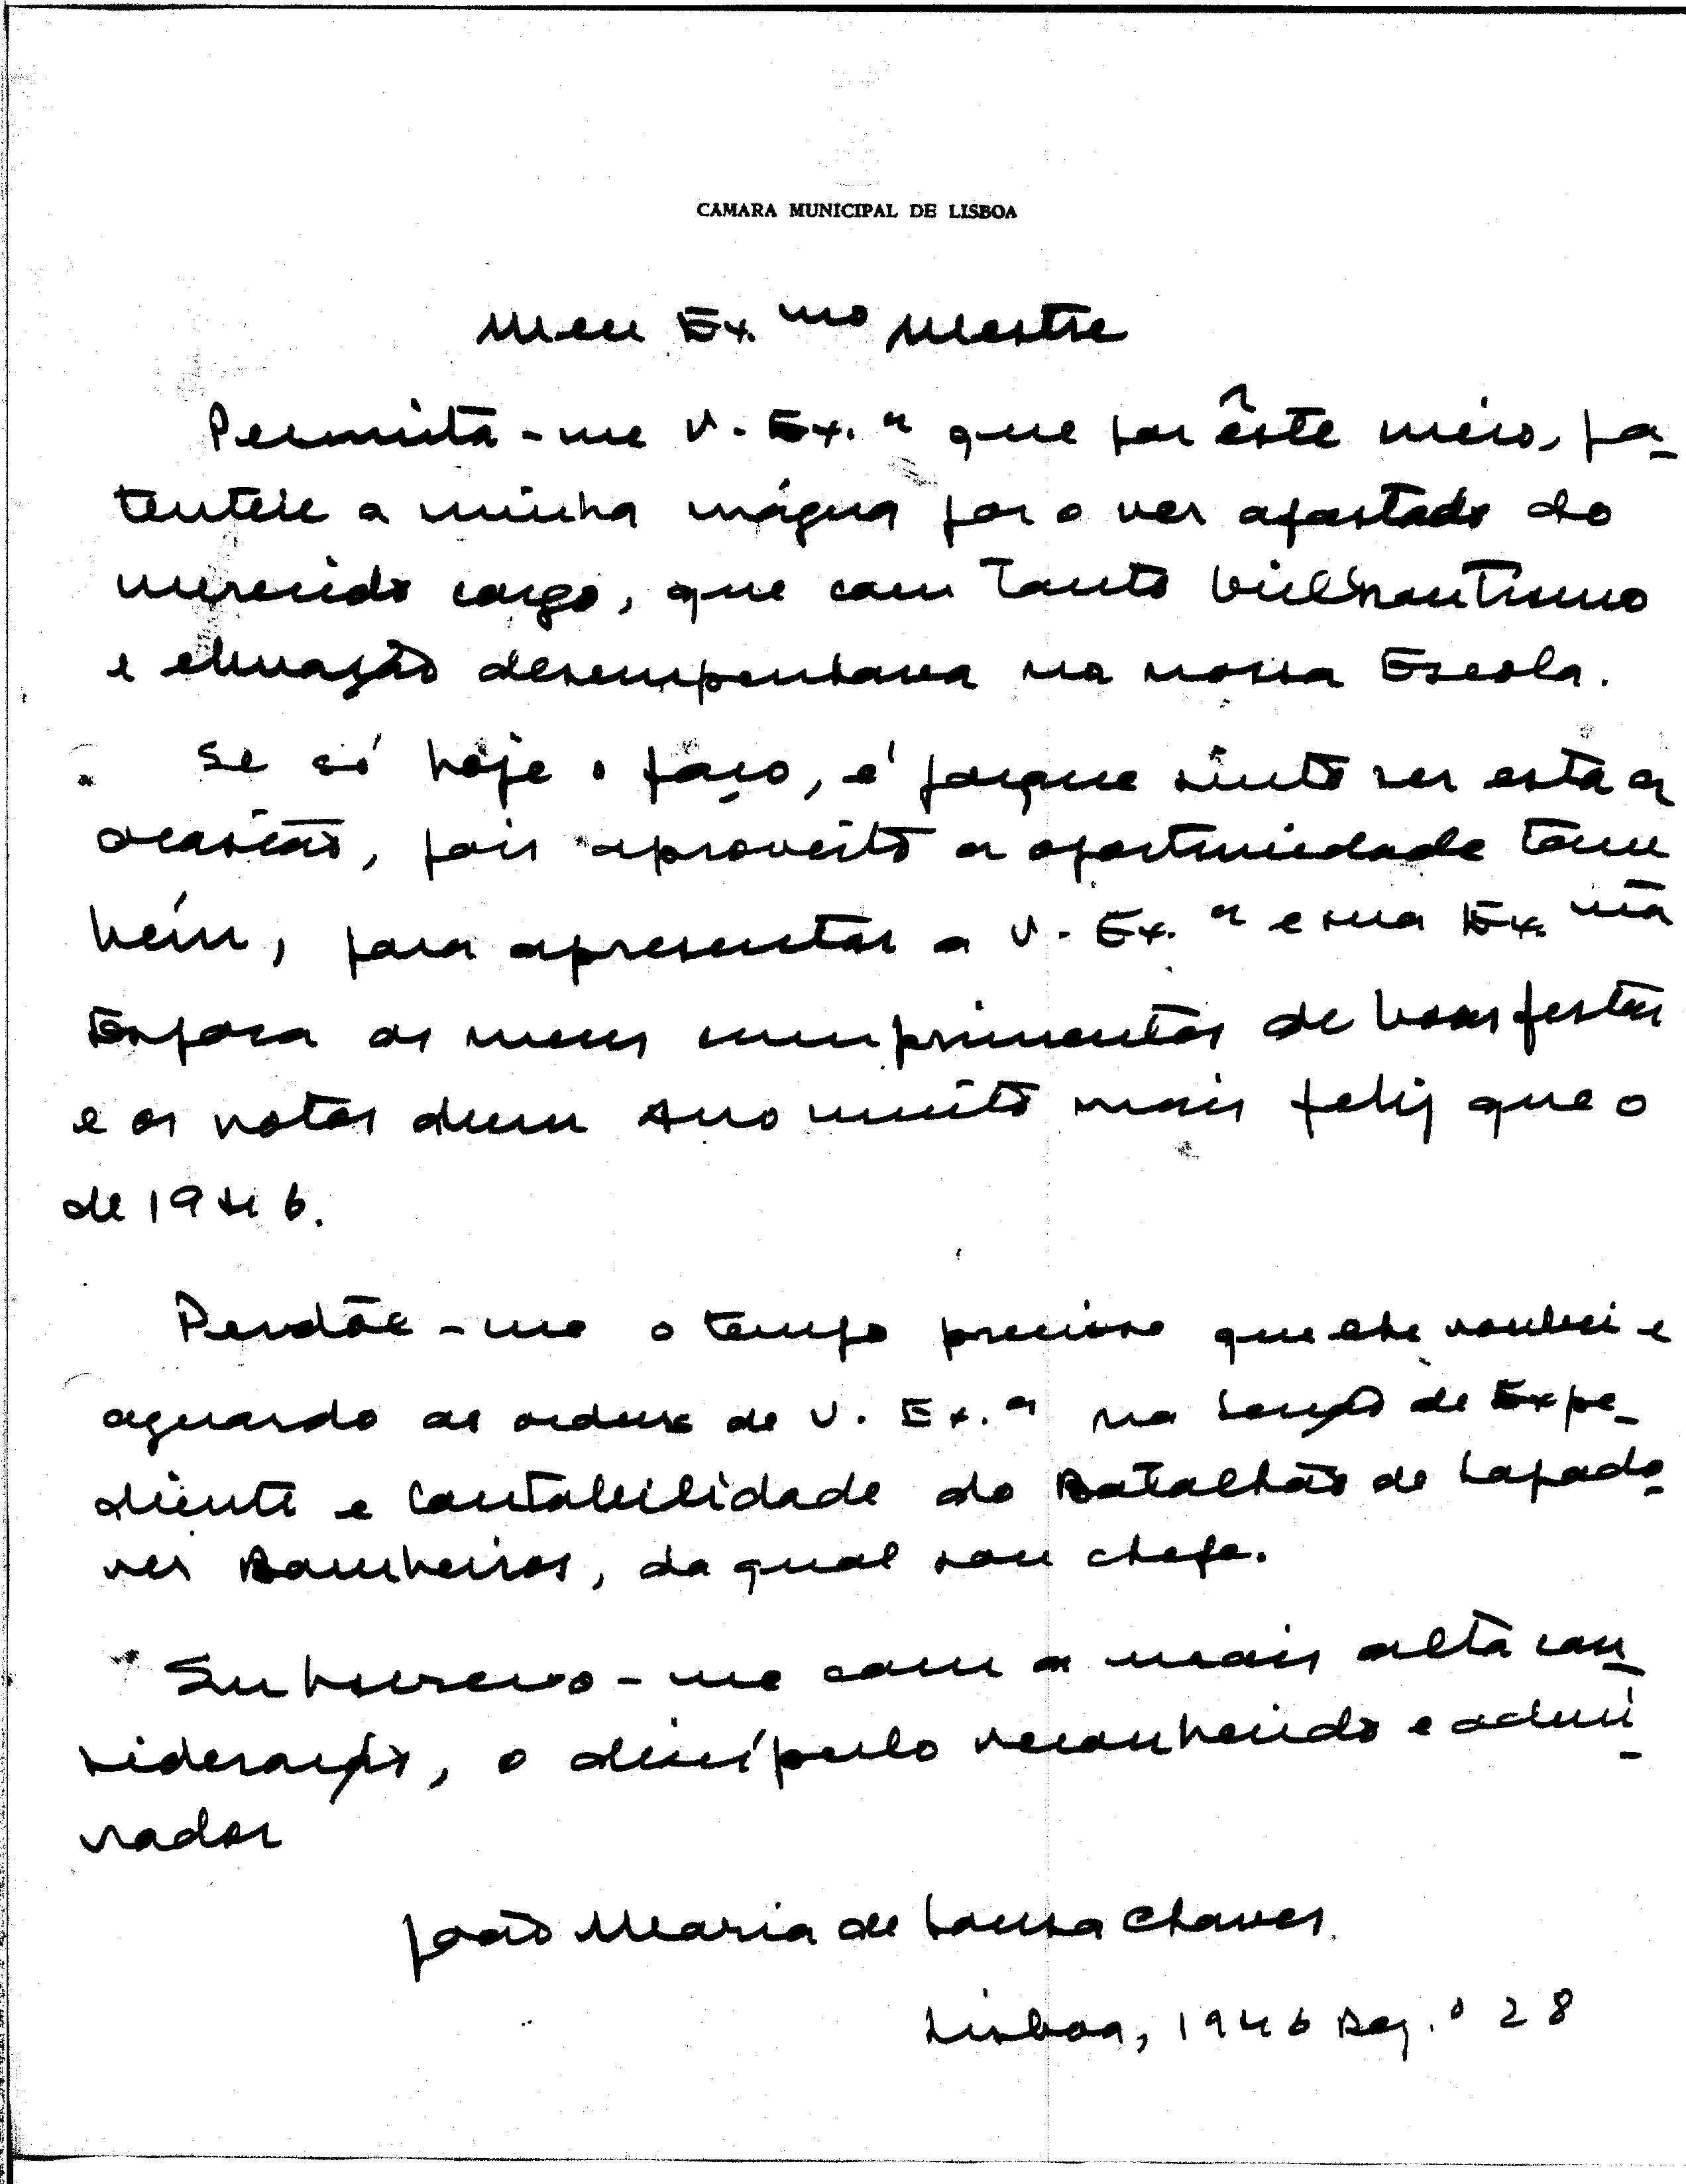 CÂMARA MUNICIPAL DE LISBOA
Meu Ex.mo Mestre
Permita-me V. Ex.a que por êste meio, pa-
tenteie a minha mágua por o ver afastado do
merecido cargo, que com tanto brilhantismo
e elevação desempenhava na nossa Escola.
Se só hoje o faço, é porque sinto ser esta a
ocasião, pois aproveito a oportunidade tam
bém, para apresentar a V. Ex.a e sua Ex.ma
Espoza os meus cumprimentos de boas festas
e os votos dum Ano muito mais feliz que o
de 1946.
Perdôe-me o tempo precioso que lhe roubei e
aguardo as ordens de V. Ex.a na Secção de Expe-
diente e Contabilidade do Batalhão de Sapado-
res Bombeiros, da qual sou chefe.
Subscrevo-me com a mais alta con-
sideração, o discípulo reconhecido e admi-
rador
João Maria de Sousa Chaves.
Lisboa, 1946 Dez.o 28